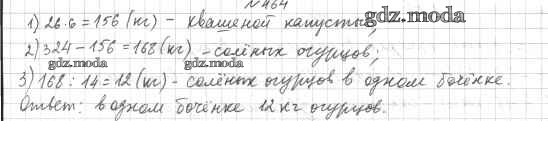 № 464
1) 26·6=156 (кг) - квашеной капусты;
gdz.moda
2) 324-156=168(кг) -солёных огурцов;
gdz.moda gdz.moda
3) 168:14=12(кг)-солёных огурцов в одном бочёнке.
Ответ: в одном бочёнке 12 кг огурцов.
gdz.moda